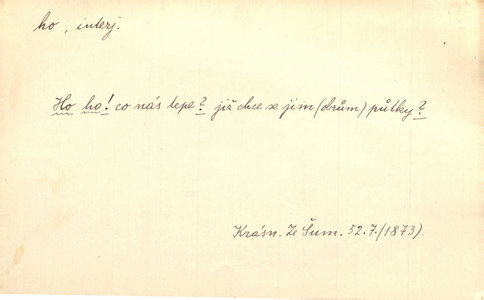 ho, interj.
Ho ho! co nás tepe? již chce se jim (obrům) půtky?
Krásn. Ze Šum. 52.7./(1873).